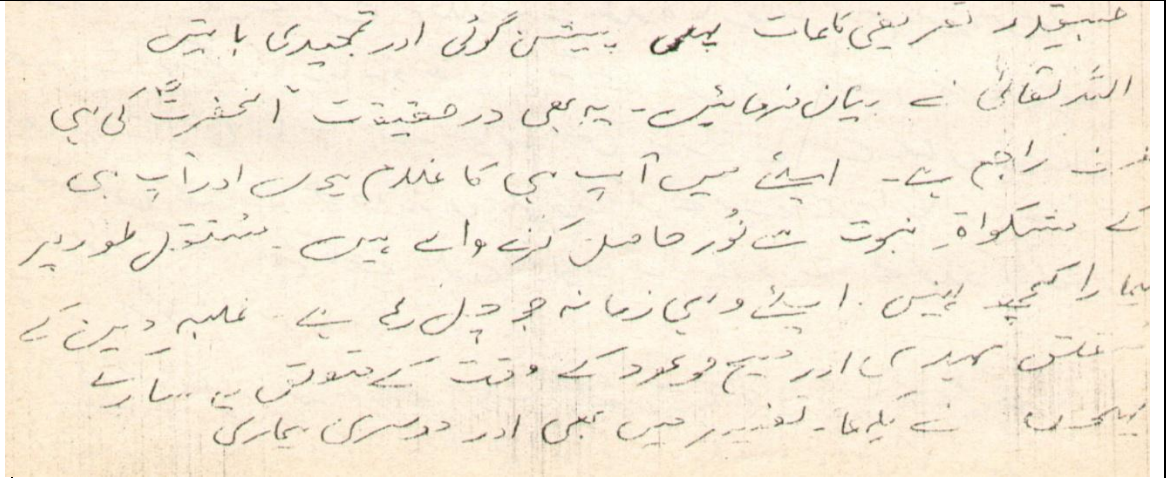 جسقدر تعریفی کلمات یعنی پیشگوئی اور تمجیدی باتیں
اللہ تعالیٰ نے بیان فرمائیں۔ یہ بھی درحقیقت آنحضرتؐ کی ہی
طرف راجع ہے۔ اسلئے میں آپ ہی کا غلام ہوں اور آپ ہی
کے مشکواۃ نبوت سے نُور حاصل کرنے والے ہیں۔ مستقل طور پر
ہمارا کچھ نہیں۔ اسلئے وہی زمانہ جو چل رہا ہے۔ غلبہ دین کے
متعلق مہدی اور مسیح موعود کے وقت کے متعلق یہ سارے
نے لکھا۔ تفسیر میں بھی اور دوسری ہماری